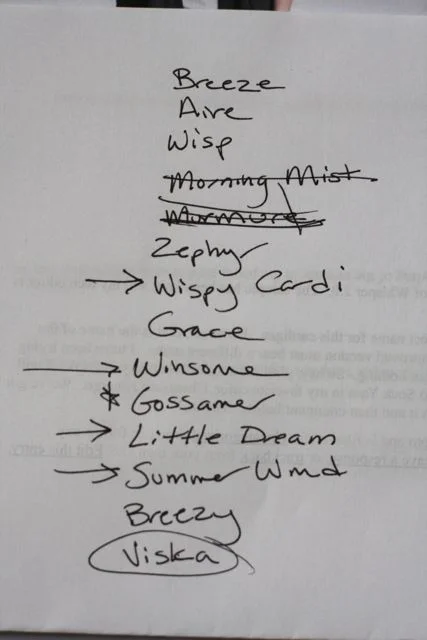 Breeze
Aire
Wisp
Morning Mist
Murmure
Zephyr
Wispy Cardi
Grace
Winsome
Gossamer
Little Dream
Summer Wind
Breezy
Viska